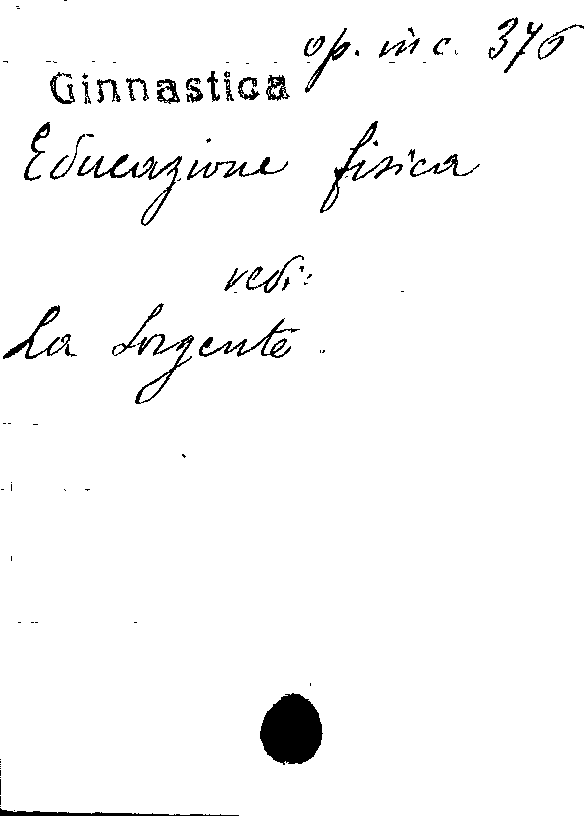 op. in c. 376
Ginnastica
Educazione fisica
vedi:
La Sorgente.